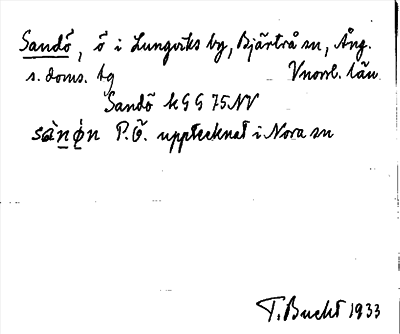 Sandö, ö i Lungviks by, Bjärtrå sn, Ång.
s. doms. tg Vnorrl. län
Sandö kGG 75NV
P.Ö. upptecknat i Nora sn
T. Bucht 1933